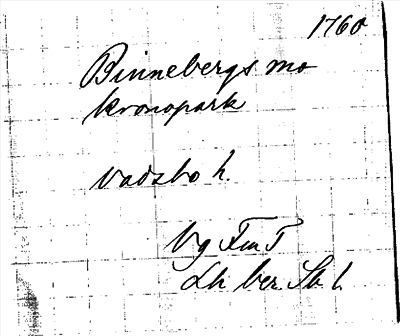 1760
Binnebergs mo
kronopark
Vadsbo h.
Vg Fm T
Lh ber. Sk l.